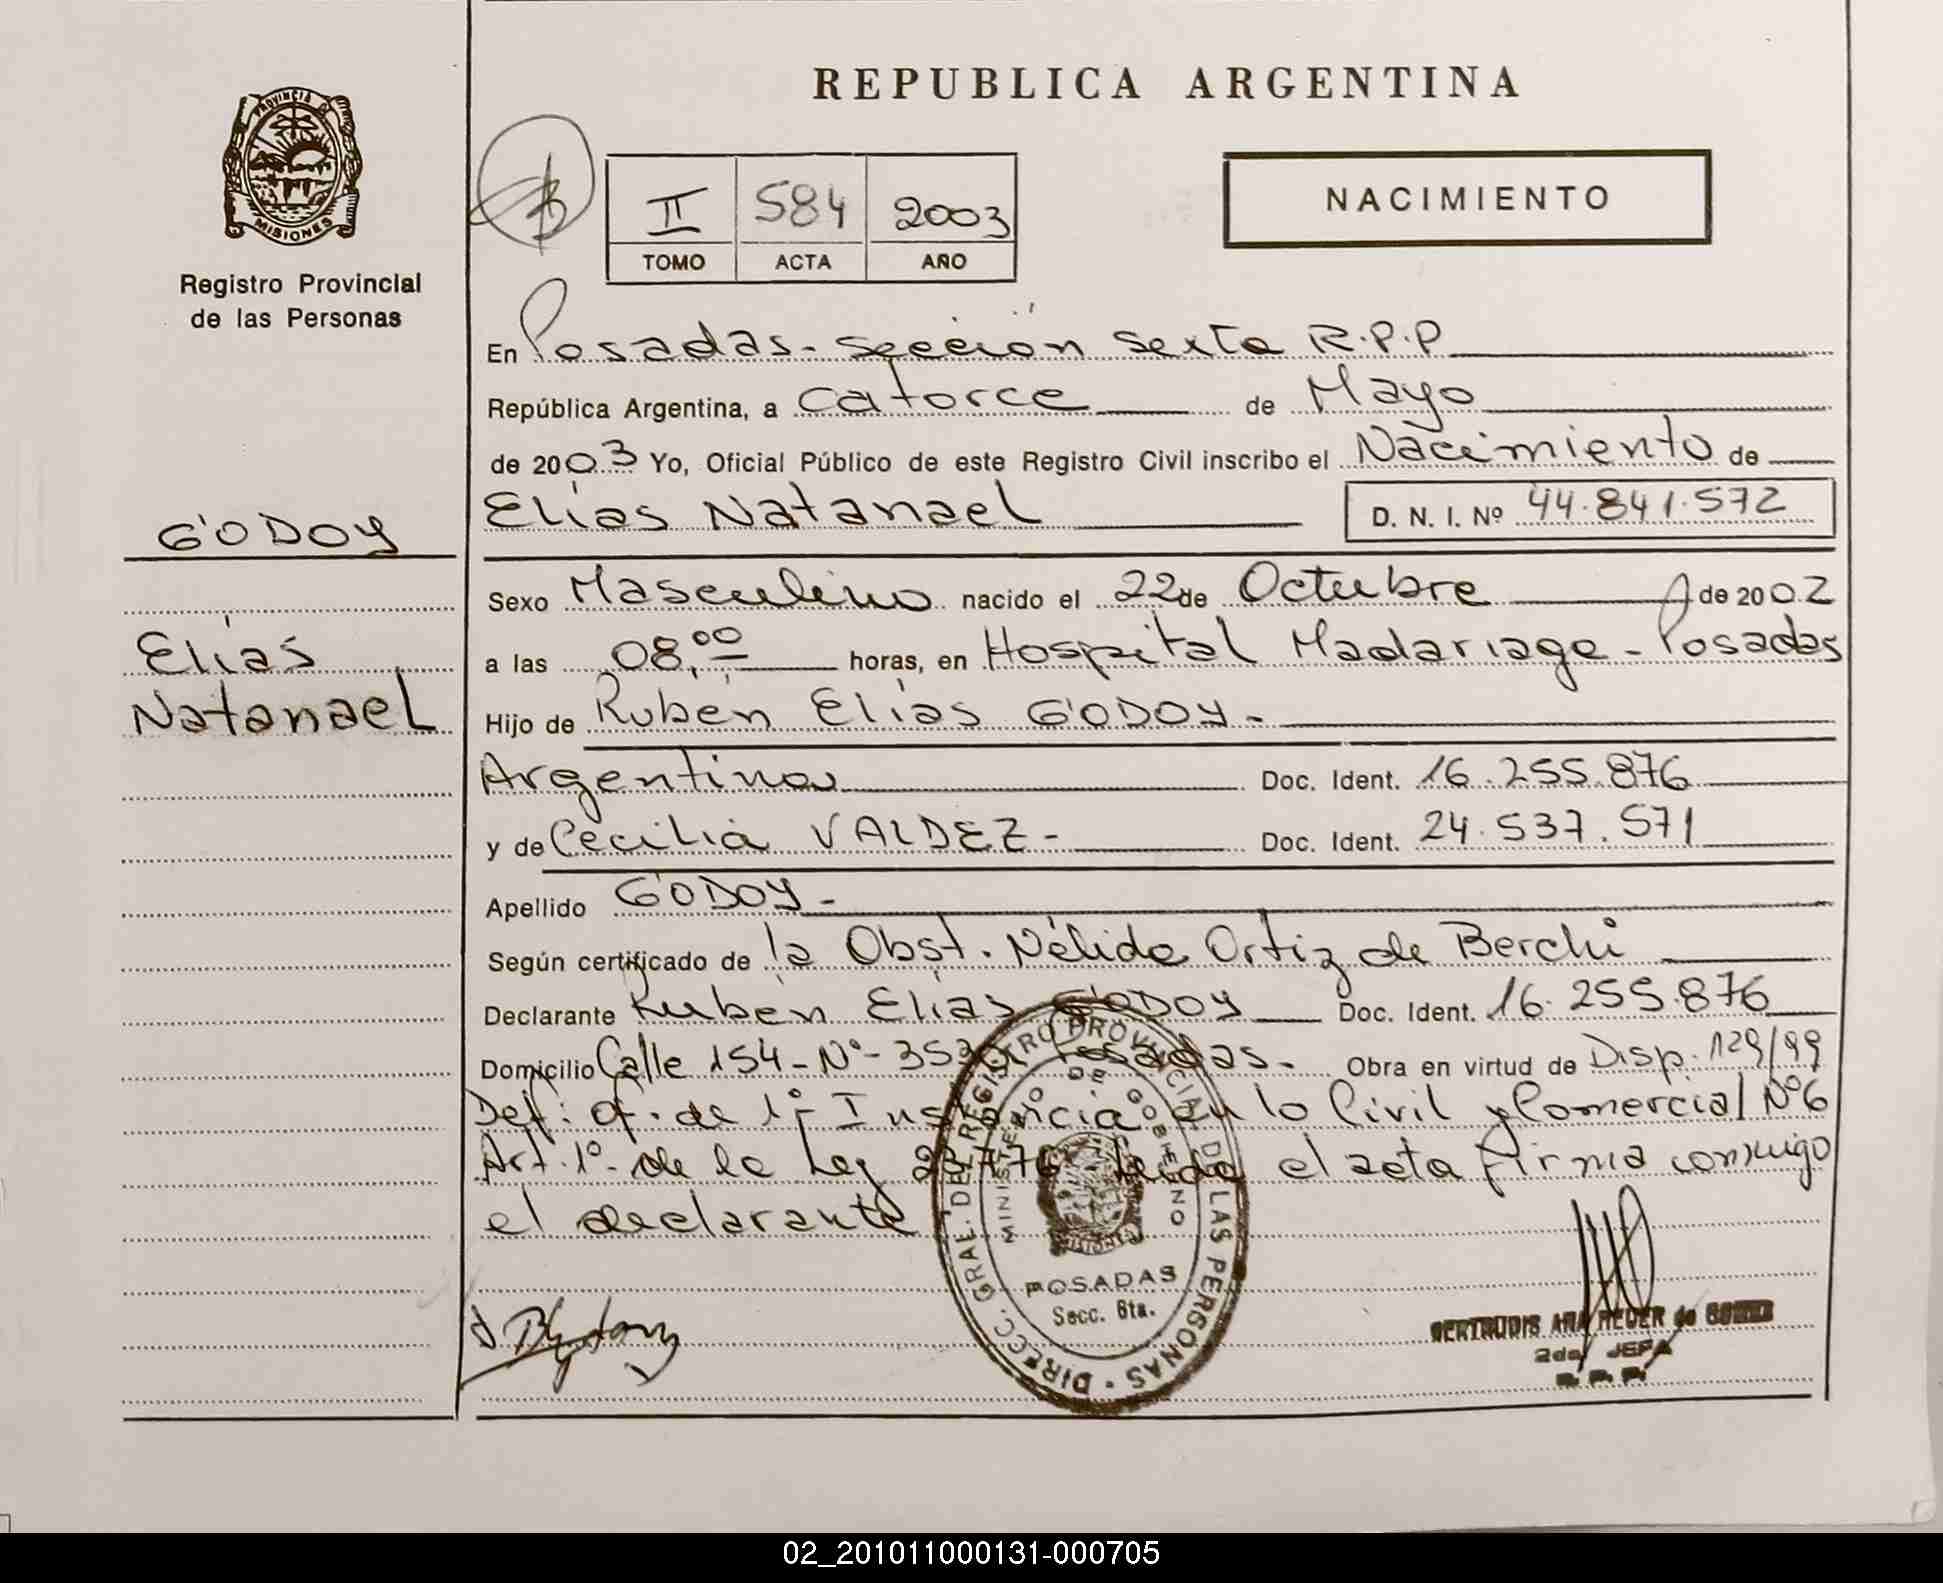 REPUBLICA ARGENTINA
PROVINCIA DE
MISIONES
Registro Provincial
de las Personas
II 584 2003
TOMO ACTA AÑO
NACIMIENTO
En Posadas - sección sexta R.P.P
República Argentina, a catorce de Mayo
de 2003 Yo, Oficial Público de este Registro Civil inscribo el Nacimiento de
Elías Natanael D. N. I. Nº 44.841.572
GODOY
Elías
Natanael
Sexo Masculino nacido el 22 de Octubre de 2002
a las 08,00 horas, en Hospital Madariaga - Posadas
Hijo de Rubén Elías GODOY -
Argentino Doc. Ident. 16.255.876
y de Cecilia VALDEZ - Doc. Ident. 24.537.571
Apellido GODOY -
Según certificado de la Obst. Nélida Ortiz de Berchi
Declarante Rubén Elías GODOY Doc. Ident. 16.255.876
Domicilio Calle 154 - Nº - Posadas - Obra en virtud de Disp. 129/99
Def. of. de 1º Instancia en lo Civil y Comercial Nº 6
Art. 1º de la Ley el acta firma conmigo
el declarante
DIRECC. GRAL. DEL REGISTRO PROVINCIAL DE LAS PERSONAS
MINISTERIO DE GOBIERNO
MISIONES
POSADAS
Secc. 6ta.
GERTRUDIS de
2da JEFA
R. P. P.
02_201011000131-000705